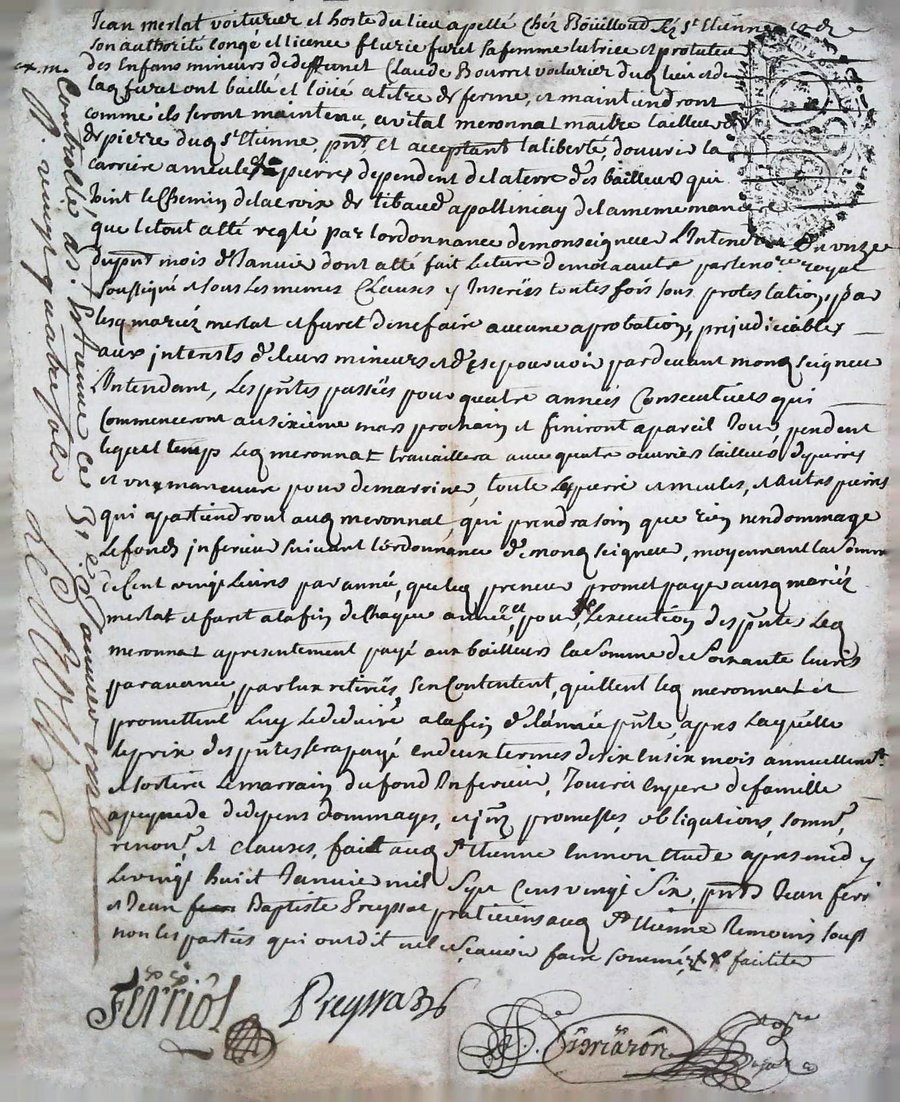 Jean merlat voiturier et hoste du lieu apellé chéz Boüilloud St Etienne et de
son authorité congé et licence fleurie furet sa femme tutrice et protuteur
des Enfans mineurs de deffunet Claude Bourret voiturier dudq lieu et de
laq furet ont baillé et loué a titre de ferme, et maintiendront
comme ils seront maintenu, a vital meronnat maitre tailleur
de pierre duq St Etienne, pnt et acceptant la liberté, douvrir la
carriere a meules pierres dependent de la terre des bailleurs qui
Joint le Chemin de la croix de tibaud a polliniay de la meme maniere
que le tout a été reglé par l'ordonnance de monseigneur L'Intendant du onze
du pnt mois de Janvier dont a été fait lecture de mot a autre par le nore royal
soussigné et sous les memes Clauses y Inserées toutes fois sous protestations, par
lesq mariéz merlat et furet de ne faire aucune aprobation, prejudiciable
aux interests de leurs mineurs et de se pourvoir pardevant monq seigneur
L'Intendant, Les pntes passées pour quatre années Consecutives qui
Commenceront au sixieme mars prochain et finiront a pareil Jour, pendent
lequel temps Leq meronnat travaillera avec quatre ouvriers tailleurs de pierres
et un maneuvre pour demarriner, toute pierre et meules, et autres pierres
qui apartiendront auq meronnat, qui prendra soin que rien n'endommage
le fonds inferieur suivant l'ordonnance de monq seigneur, moyennant la somme
de Cent vingt Livres par année, que leq preneur promet payer ausq mariéz
merlat et furet a la fin de chaque année, et pour L'execution des pntes Leq
meronnat a presentement payé aux bailleurs la somme de soixante livres
par avance, par eux retirées, s'en Contentent, quittent leq meronnat et
promettent Luy Le deduire a la fin de l'année pnte, apres Laquelle
Le prix des pntes sera payé en deux termes de six en six mois annuellemt
et sortira Le marrain du fond Inferieur, Jouira en pere de famille
a peyne de depens dommages, et promesses, obligations, soumn,
renonn, et clauses, fait auq St Etienne en mon etude apres midy
Le vingt huit Janvier mil sept Cens vingt six, pnts Jean feriol
et Jean Baptiste Preyssat praticiens auq St Etienne temoins soussi
non les parties qui ont dit ne le sçavoir faire sommées
Ferriol Preyssat
Controllé a St Estienne ce 31e Janvier 1726
R. vingt quatre sols